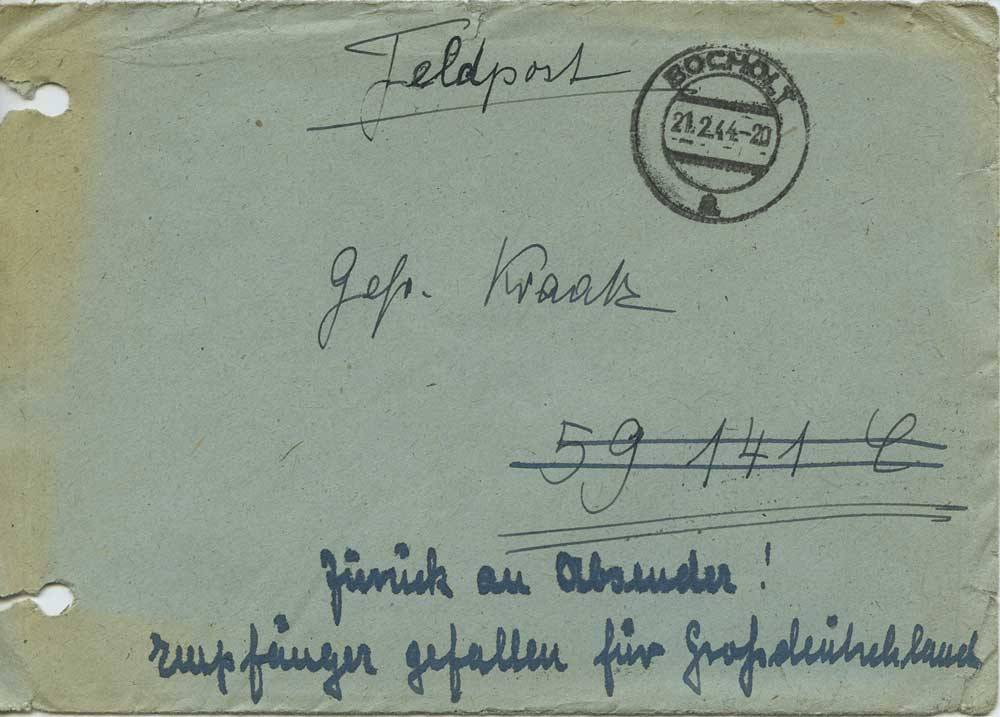 Feldpost
BOCHOLT
21.2.44-20
a
Gefr. Kraak
59 141 C
Zurück an Absender!
Empfänger gefallen für Großdeutschland